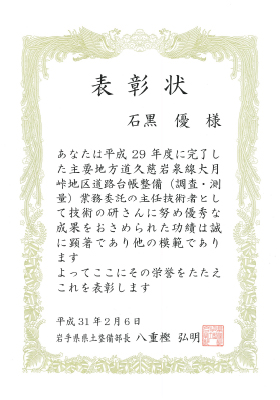 表彰状
石黒 優 様
あなたは平成29年度に完了し
た主要地方道久慈岩泉線大月
峠地区道路台帳整備（調査・測
量）業務委託の主任技術者とし
て技術の研さんに努め優秀な
成果をおさめられた功績は誠
に顕著であり他の模範であり
ます
よってここにその栄誉をたたえ
これを表彰します
平成31年2月6日
岩手県県土整備部長 八重樫 弘明